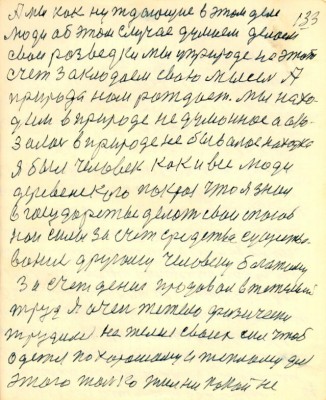 133
А мы как нуждающие в этом деле
люди об этом случае думаем делаем
свои разведки мы природе на этот
счет закладаем свою мысль А
природа нам рождает. мы нахо
дим в природе не думанное а
в природе не бывалое находка
я был человек как и все люди
деревенского покроя что я знал
в государстве делать свои способ
ной силы за счет средства существо
вание другому человеку богатому
за счет денег продавал в
труд Я очен тяжело физически
трудился на поле своих сил чтоб
одется по хорошему и теплому для
этого только жизни такой не